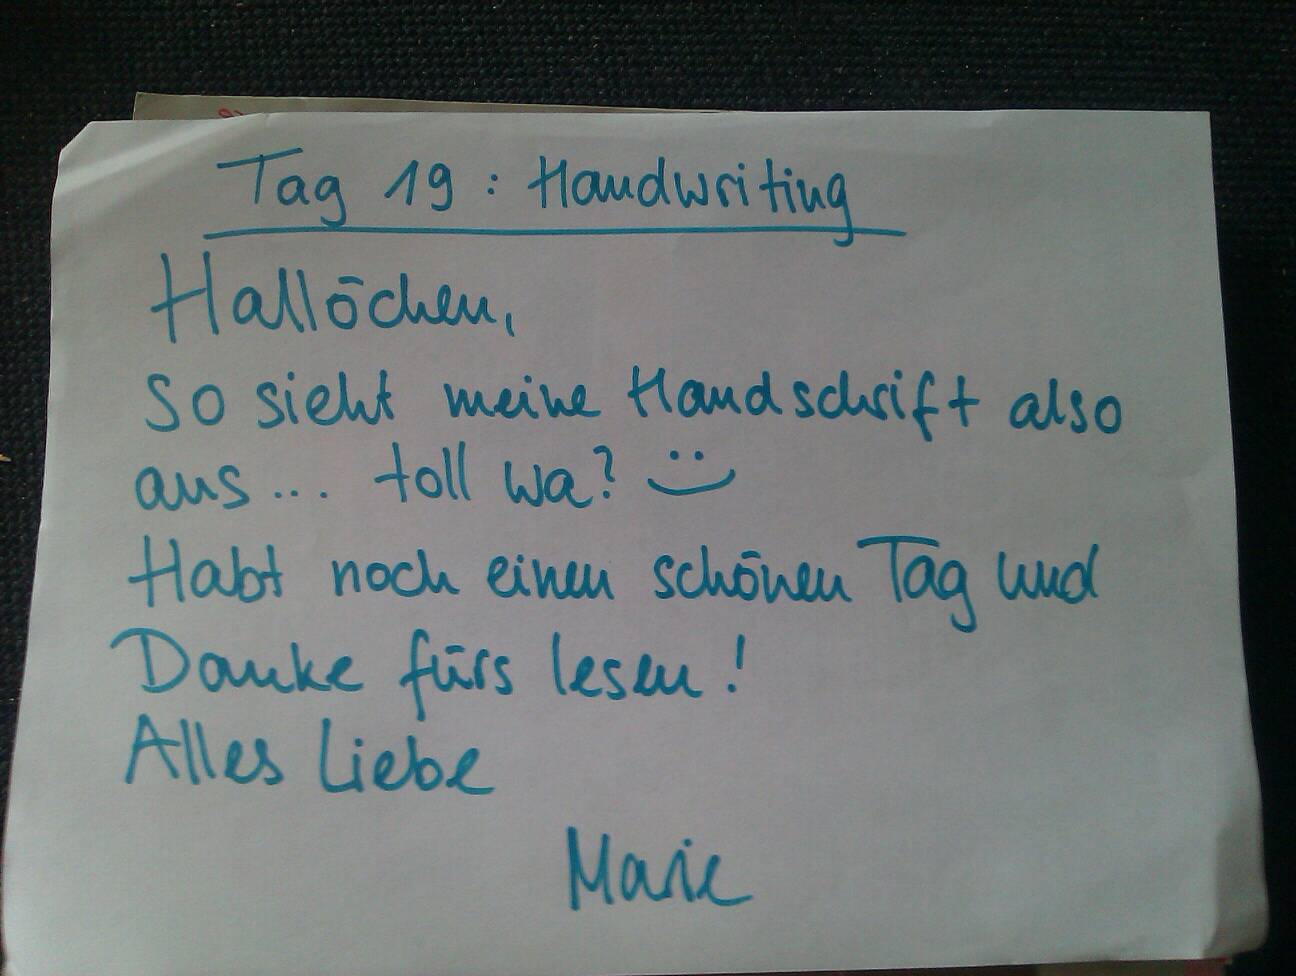 Tag 19: Handwriting
Hallöchen,
so sieht meine Handschrift also
aus... toll wa? :)
Habt noch einen schönen Tag und
Danke fürs lesen!
Alles Liebe
Marie